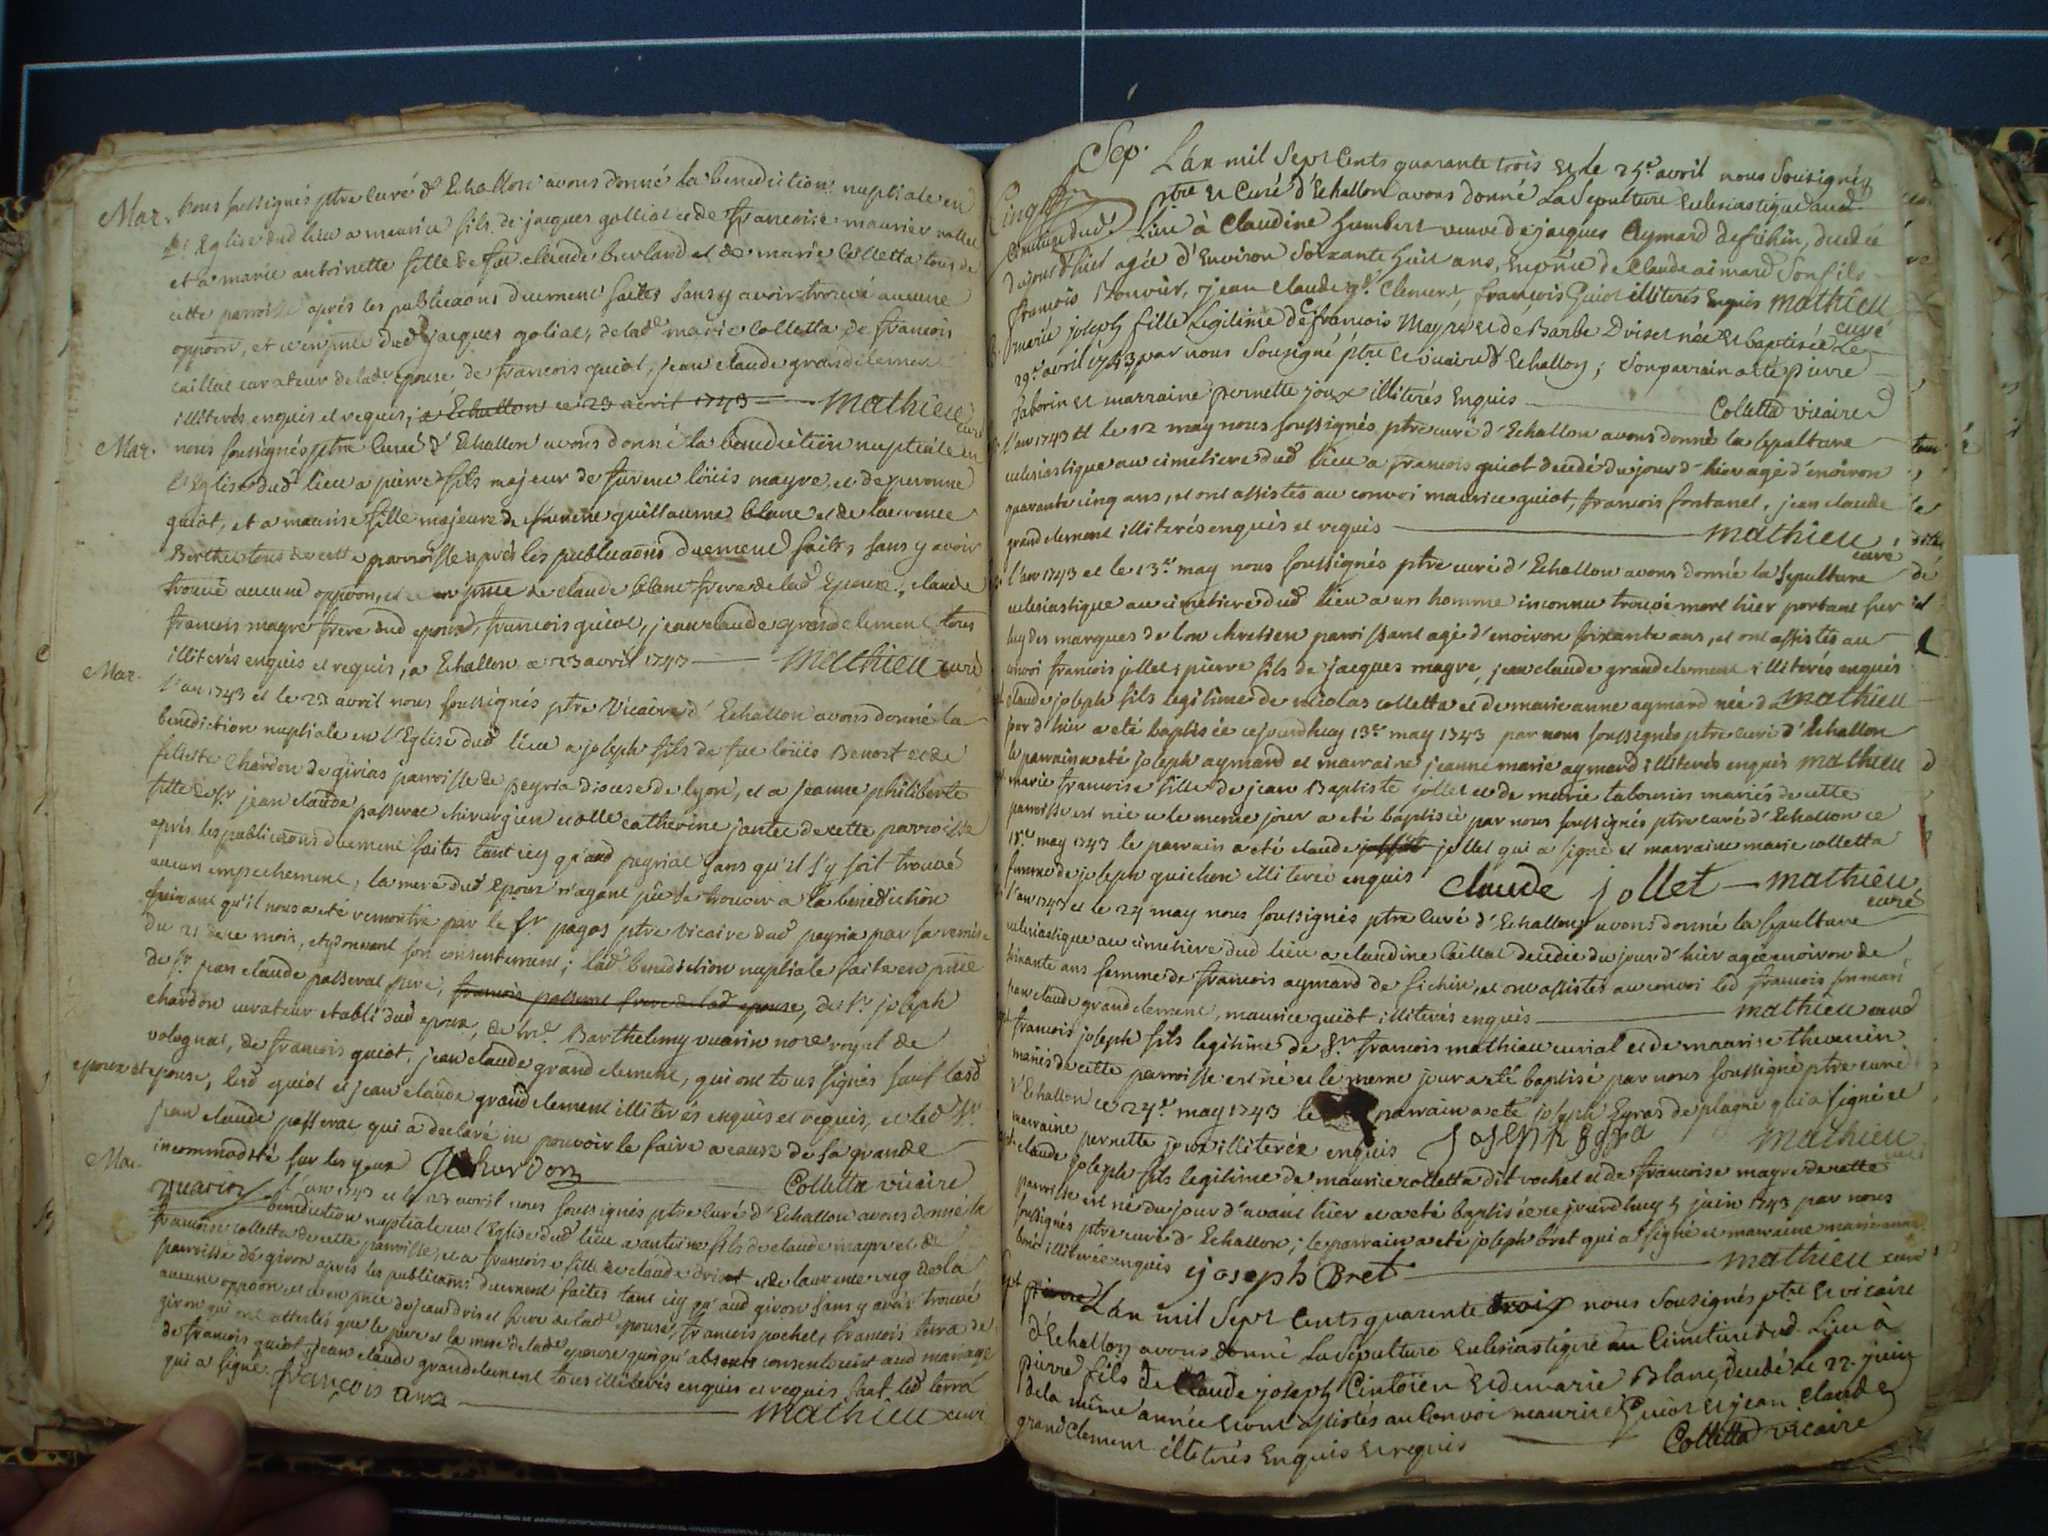 Mar. nous soussignés ptre curé d'Echallon avons donné la benediction nuptiale en
l'Eglise dud lieu a maurice fils de jacques golliat et de francoise maurier
et a marie antoinette fille de feu claude berland et de marie colletta tous de
cette parroisse après les publicaons duement faites sans y avoir trouvé aucune
oppoon, et ce en pnce dud jacques goliat, de lad marie colletta de francois
caillat curateur de lad epouse de francois guiot, jean claude grandclement
illiterés enquis et requis, a Echallon ce 23 avril 1743 mathieu curé
Mar. nous soussignés ptre curé d'Echallon avons donné la benediction nuptiale en
l'Eglise dud lieu a pierre fils majeur de feu louis mayre, et de peronne
guiot, et a maurise fille majeure de guillaume blanc et de laurence
Berthet tous de cette parroisse après les publicaons duement faites sans y avoir
trouvé aucune oppoon, et ce en pnce de claude blanc frere de lad Epouse, claude
francois mayre frere dud epoux, francois guiot, jean claude grandclement tous
illiterés enquis et requis, a Echallon ce 23 avril 1743 mathieu curé
Mar. l'an 1743 et le 23 avril nous soussignés ptre Vicaire d'Echallon avons donné la
benediction nuptiale en l'Eglise dud lieu a joseph fils de feu louis Benoit et de
chardon de girias parroisse de peyria diocese de lyon, et a jeanne philiberte
fille de sr jean claude passerat chirurgien et dlle catherine jantet de cette parroisse
après les publications duement faites tant icy qu'aud peyriat sans qu'il s'y soit trouvé
aucun empechement, la mere dud epoux n'ayant pu se trouver a la benediction
suivant qu'il nous a eté remontré par le sr pagos ptre vicaire dud peyria par sa remise
du 21 de ce mois, et y donnant son consentement; lad benediction nuptiale faite en pnce
de sr jean claude passerat pere, francois passerat frere de lad epouse, de sr joseph
chardon curateur etabli dud epoux, de Me Barthelemy vuarin nore royal de
volognat, de francois guiot, jean claude grandclement, qui ont tous signés sauf lesd
epoux et epouse, lesd guiot et jean claude grandclement illiterés enquis et requis, et led sr
jean claude passerat qui a declaré ne pouvoir le faire a cause de sa grande
incommodité sur les yeux J chardon
vuarin Colletta vicaire
Mar. l'an 1743 et le 23 avril nous soussignés ptre curé d'Echallon avons donné la
benediction nuptiale en l'Eglise dud lieu a antoine fils de claude mayre et de
francoise colletta de cette parroisse, et a francoise fille de claude drivet et de laurence rey de la
parroisse de giron après les publicaons duement faites tant icy qu'aud giron sans y avoir trouvé
aucune oppoon et ce en pnce de jean drivet frere de lad epouse, francois pochet, francois terra de
giron qui ont attestés que le pere et la mere de lad epouse quoiqu'absents consentoient aud mariage
de francois guiot, jean claude grandclement tous illiterés enquis et requis sauf led terra
qui a signé françois
mathieu curé
Sep. L'an mil Sept Cents quarante trois et le 25e avril nous Sousignés
ptre et Curé d'Echallon avons donné La Sepulture Eclesiastique au
Cimetiere dud Lieu à Claudine humbert veuve de jacques Aymard de fichin, decedée
du jour d'hier agée d'Environ Soixante huit ans, En pnce de Claude aimard Son fils
francois Bouvier, jean claude gd Clement, francois Guiot illiterés Enquis mathieu curé
marie joseph fille Legitime de francois Mayre et de Barbe Drivet née et baptisée Le
29e avril 1743 par nous Sousigné ptre et vicaire d'Echallon; Son parrain a eté pierre
Taborin et marraine pernette joux illiterés Enquis Colletta vicaire
l'an 1743 et le 12 may nous soussignés ptre curé d'Echallon avons donné la sepulture
eclesiastique au cimetiere dud lieu a francois guiot decedé du jour d'hier agé d'environ
quarante cinq ans, et ont assistés au convoi maurice guiot, francois fontanel, jean claude
grandclement illiterés enquis et requis mathieu curé
l'an 1743 et le 13e may nous soussignés ptre curé d'Echallon avons donné la sepulture
eclesiastique au cimetiere dud lieu a un homme inconnu trouvé mort hier portant sur
luy des marques de bon chretien paroissant agé d'environ soixante ans, et ont assistés au
convoi francois jollet, pierre fils de jacques mayre, jean claude grandclement illiterés enquis
claude joseph fils legitime de nicolas colletta et de marie anne aymard né d mathieu
jour d'hier a eté baptisé ce jourdhuy 13e may 1743 par nous soussignés ptre curé d'Echallon
le parrain a eté joseph aymard et marraine jeanne marie aymard illiterés enquis mathieu
marie francoise fille de jean Baptiste jollet et de marie tabourin mariés de cette
parroisse est née et le meme jour a eté baptisée par nous soussignés ptre curé d'Echallon ce
18e may 1743 le parrain a eté claude jollet qui a signé et marraine marie colletta
femme de joseph guichon illiterée enquis claude jollet mathieu curé
l'an 1743 et le 24 may nous soussignés ptre curé d'Echallon avons donné la sepulture
eclesiastique au cimetiere dud lieu a claudine caillat decedée du jour d'hier agée environ de
soixante ans femme de francois aymard de fichin, et ont assistés au convoi led francois son mari
jean claude grandclement, maurice guiot illiterés enquis mathieu curé
francois joseph fils legitime de sr francois mathieu curial et de maurise thevenin
mariés de cette parroisse est né et le meme jour a eté baptisé par nous soussigné ptre curé
d'Echallon ce 24e may 1743 le parrain a eté joseph Egras de plagne qui a signé et
marraine pernette joux illiterée enquis joseph egra mathieu
claude joseph fils legitime de maurice colletta dit rochet et de francoise mayre de cette
parroisse est né du jour d'avant hier et a eté baptisé ce jourdhuy 5 juin 1743 par nous
soussignés ptre curé d'Echallon; le parrain a eté joseph bret qui a signé et marraine marie anne
illiterée enquis joseph Bret mathieu curé
pierre L'an mil Sept Cents quarente trois nous Sousignés ptre et vicaire
d'Echallon avons donné La Sepulture Eclesiastique au Cimetiere dud. Lieu à
pierre fils de Claude joseph Cintoïen et de marie Blanc decedé Le 22. juin
de la même année et ont assistés au Convoi maurice Guiot et jean Claude
grand Clement illiterés Enquis et requis Colletta vicaire